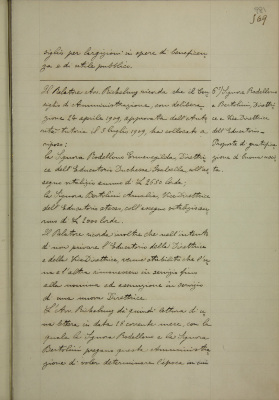 siglio per largizioni in opere di beneficen-
za o di utile pubblico.
Il Relatore Avv. Pickelung ricorda che il Con-
siglio di Amministrazione, con delibera-
zione 26 aprile 1909, approvata dall'Auto-
rità tutoria il 8 luglio 1909, ha collocato a
riposo:
la Signora Rodellono Ermenegilda, Direttri-
ce dell'Educatorio Duchessa Isabella, coll'as-
segno vitalizio annuo di L. 2550 lorde;
la Signora Bertolini Amalia, Vice Direttrice
dell'Educatorio stesso, coll'assegno vitalizio an-
nuo di L. 2000 lorde.
Il Relatore ricorda inoltre che nell'intento
di non privare l'Educatorio della Direttrice
e della Vice Direttrice, venne stabilito che l'u-
na e l'altra rimanessero in servizio fino
alla nomina ed assunzione in servizio
di una nuova Direttrice.
L'Avv. Pickelung dà quindi lettura di u-
na lettera in data 18 corrente mese, con la
quale la Signora Rodellono e la Signora
Bertolini pregano questa Amministra-
zione di voler determinare l'epoca in cui
6°/ Signora Rodellono
e Bertolini, Direttri-
ce e Vice Direttrice
dell'Educatorio
Proposta di gratifica-
zione di buona uscita
349